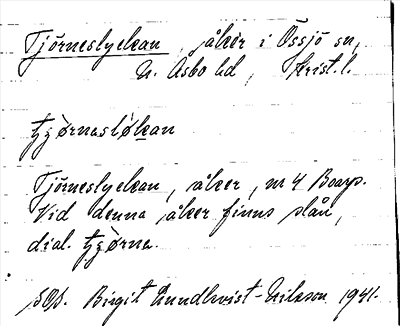 Tjörneslyckan, åker i Össjö sn,
N. Åsbo hd, Krist. l.
Tjörneslyckan, åker, nr 4 Boarp.
Vid denna åker finns slån,
dial.
Birgit Lundkvist-Nilsson 1941.